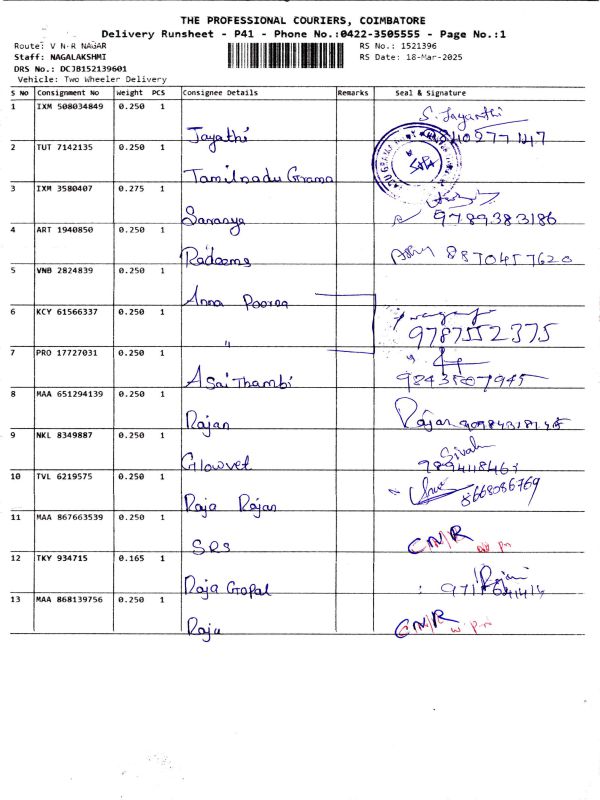 THE PROFESSIONAL COURIERS, COIMBATORE
Delivery Runsheet - P41 - Phone No.:0422-3505555 - Page No.:1
Route: V N R NAGAR RS No.: 1521396
Staff: NAGALAKSHMI RS Date: 18-Mar-2025
DRS No.: DCJB152139601
Vehicle: Two Wheeler Delivery
S No Consignment No Weight PCS Consignee Details Remarks Seal & Signature
1 IXM 508034849 0.250 1 Jayathi S. Jayanthi
2 TUT 7142135 0.250 1 Tamilnadu Grama
3 IXM 3580407 0.275 1 Saranya 9789383186
4 ART 1940850 0.250 1 8870457620
5 VNB 2824839 0.250 1 Anna Poorna
6 KCY 61566337 0.250 1 " 9787552375
7 PRO 17727031 0.250 1 Asai Thambi
8 MAA 651294139 0.250 1 Rajan Rajan
9 NKL 8349887 0.250 1 Glowvet
10 TVL 6219575 0.250 1 Raja Rajan 8668086769
11 MAA 867663539 0.250 1 SRS
12 TKY 934715 0.165 1 Raja Gopal
13 MAA 868139756 0.250 1 Raju